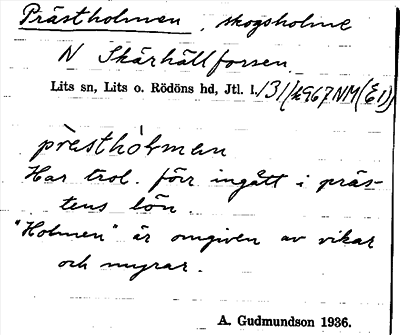 Prästholmen, skogsholme
N Skärhällforsen
Lits sn, Lits o. Rödöns hd, Jtl. l.
prèsthòlmen
Har trol. förr ingått i präs-
tens lön.
"Holmen" är omgiven av vikar
och myrar.
A. Gudmundson 1936.